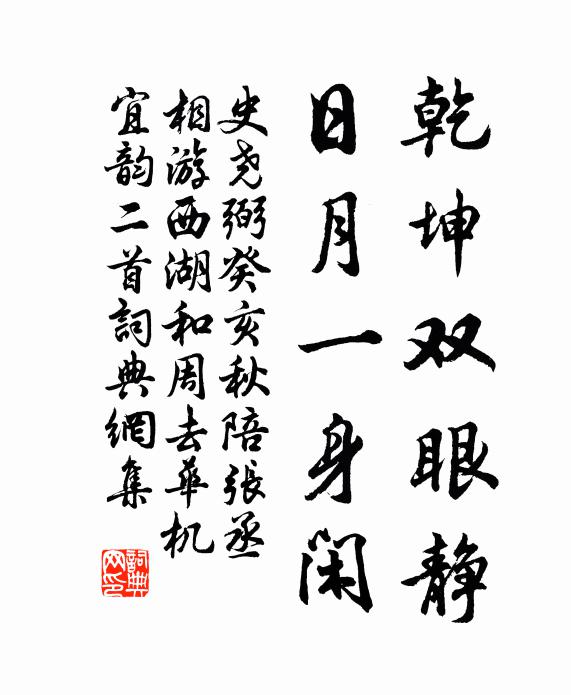 乾坤双眼静
日月一身闲
史尧弼癸亥秋陪張丞
相游西湖和周去華机
宜韵二首詞典網集
詞典網印